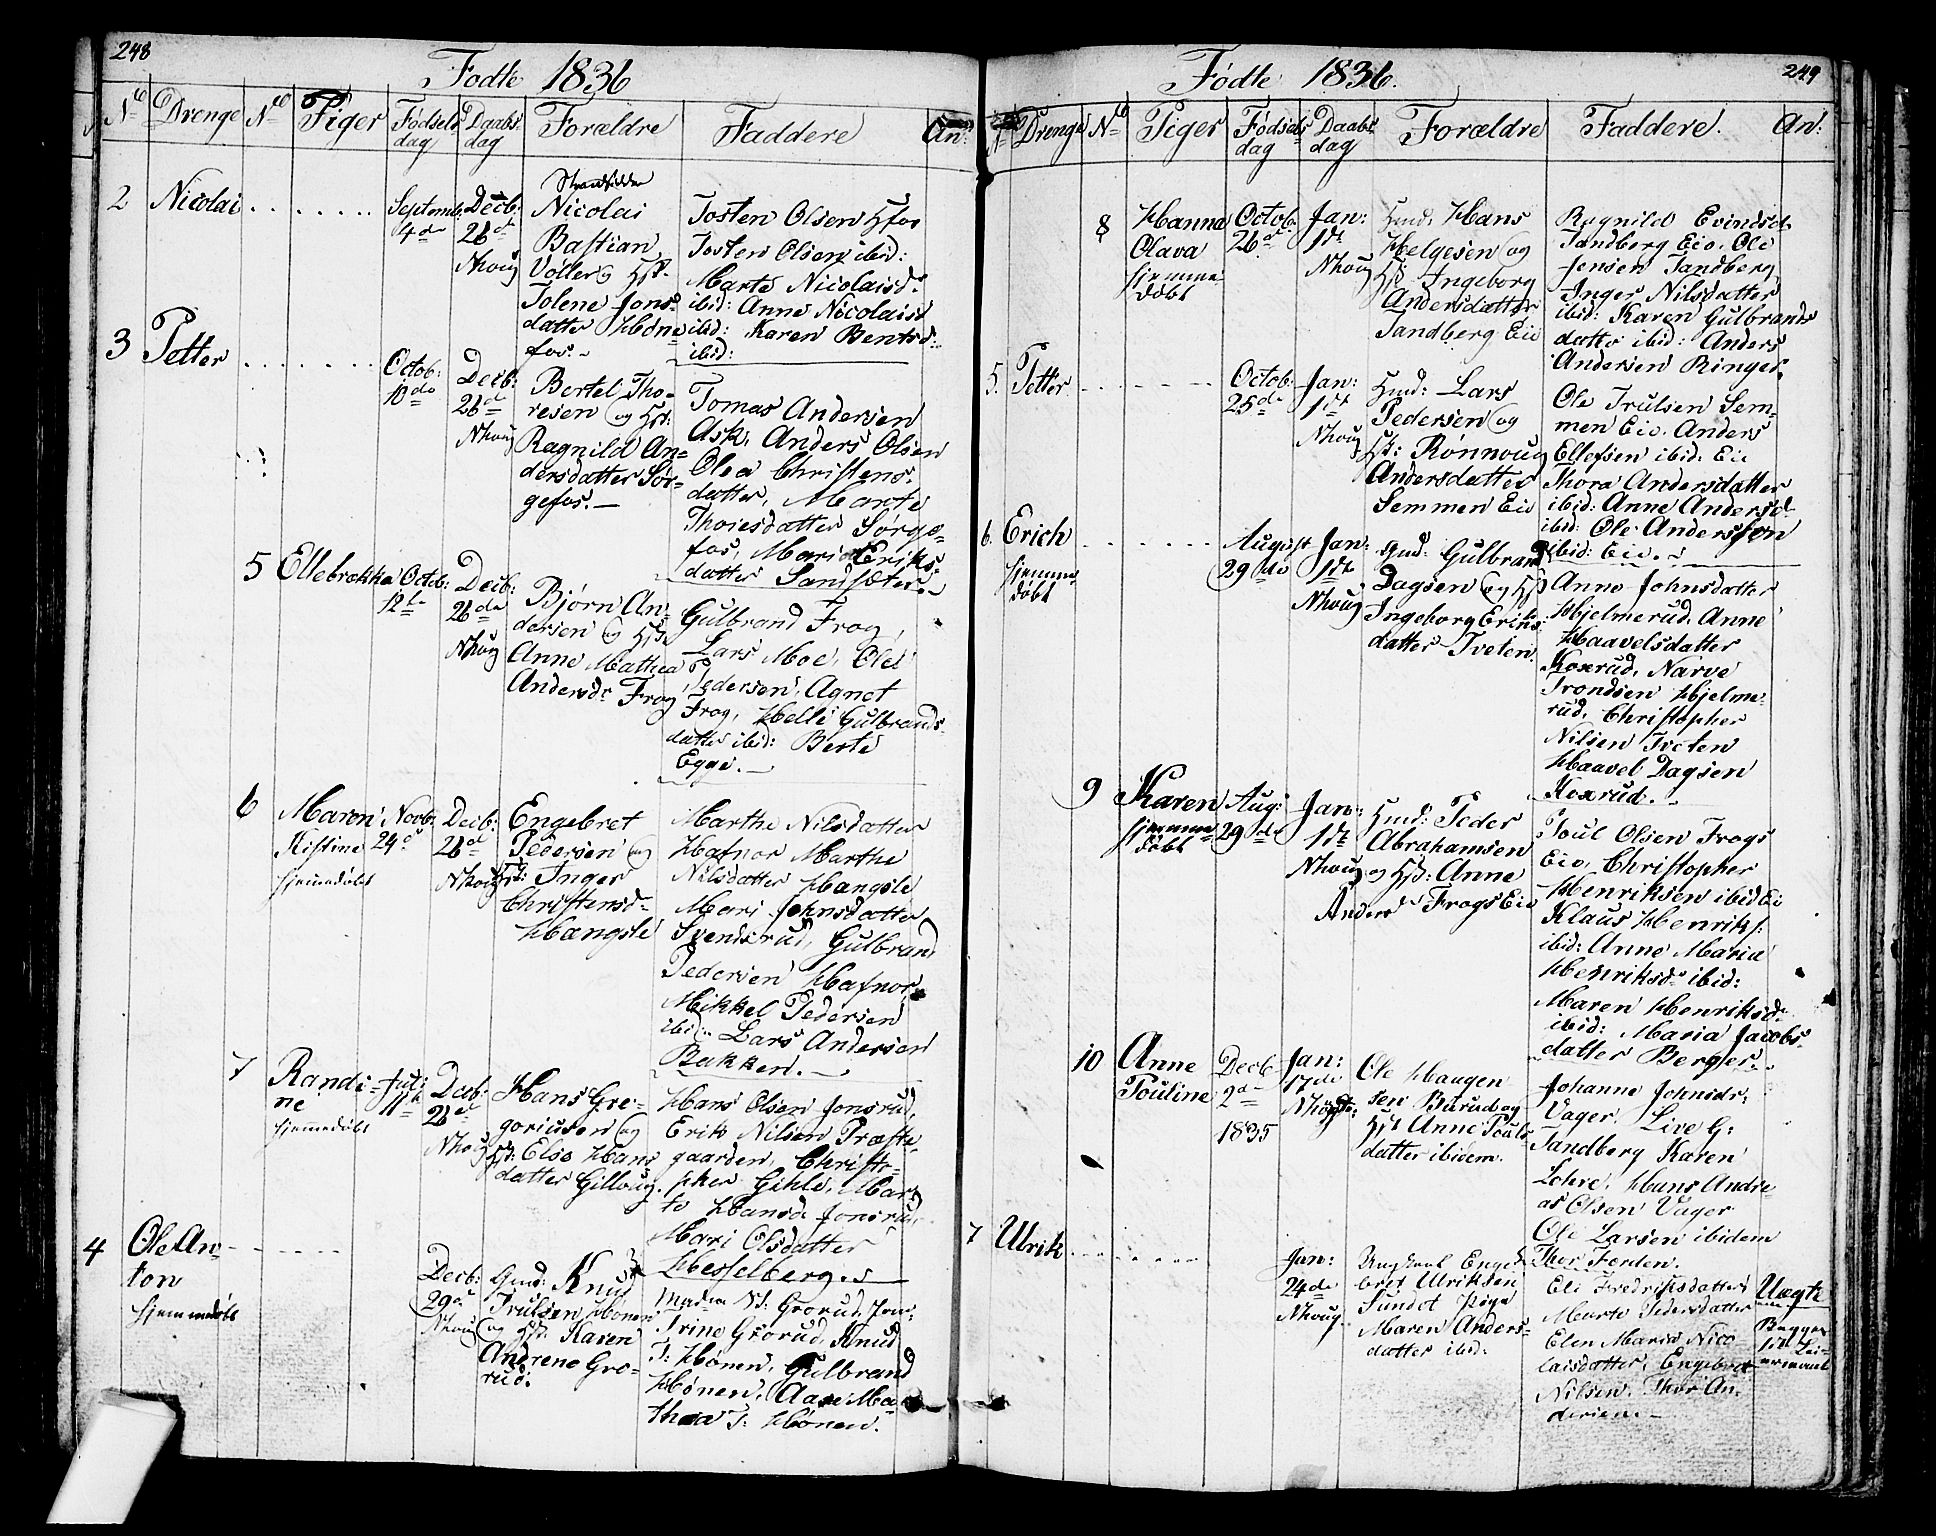 248
Fødte 1836
No Drenge No Piger Fødsels dag Daabs dag Forældre Faddere An:
2 Nicolai
Septemb: 4de
Decb: 26de
Nhoug
Nicolai
Bastian
Vøller og Hst.
Jolene Jons
datter Høne
fos.
Josten Olsen Hfos
Josten Olsen ibid:
Marte Nicolaisd.
ibid: Anne Nicolaisd
ibid: Karen Bentsd:
ibid:
3 Petter
Octob: 10de
Decb: 26de
Nhoug
Bertel Tho-
resen og Hst:
Ragnild An-
dersdatter Sør-
gefos.
Tomas Andersen
Ask, Anders Olsen
Olea Christens-
datter, Marte
Thoresdatter Sørge-
fos, Maria Eriks-
datter Sandsæter.
5 Ellebrokka
Octob: 12te
Decb: 26de
Nhoug
Bjørn An-
dersen og Hst.
Anne Mathea
Andersdr Frog
Gulbrand Frog,
Lars Moe, Ole
Pedersen, Agnet
Frog, Helle Gulbrands-
datter ibid: Berte
Egge.
6 Maren
Kistine
hjemedøbt
Novb: 24de
Decb: 26de
Nhoug
Engebret
Pedersen og
Hst: Inger
Christensd.
Hangsle
Marthe Nilsdatter
Hafnor Marthe
Nilsdatter Hangsle
Mari Johnsdatter
Svendsrud, Gulbrand
Pedersen Hafnor,
Mikkel Pedersen
ibid: Lars Andersen
Bakken.
7 Randi-
ne
hjemedøbt
Juli 11te
Decb: 26de
Nhoug
Hans Gre-
goriusen og
Hst: Else Hans
datter Gilloug.
Hans Olsen Jonsrud,
Erik Nilsen Præste-
gaarden, Christo-
pher Gihle, Mar-
te Hansd. Jonsrud,
Mari Olsdatter
Hesselberg.
4 Ole An-
ton
hjemmedøbt
Decb: 29de
Nhoug
Gmd: Knud
Trulsen Hønen
og Hst. Karen
Andrene Gro-
rud.
Trine Grorud, Knud
T: Hønen, Gulbrand
Hønen, Aase Ma-
thea T: Hønen.
249
Fødte 1836.
No Drenge No Piger Fødsels dag Daabs dag Forældre Faddere. An:
8 Hanna
Olava
hjemme
døbt
Octob: 26de
Jan: 1ste
Nhoug
Hmd. Hans
Helgesen og
Hst Ingeborg
Andersdatter
Tandberg Eie
Ragnild Evindsd.
Tandberg Eie, Ole
Jensen Tandberg
Inger Nilsdatter
ibid: Karen Gulbrands
datter ibid: Anders
Andersen Ringer.
5. Petter
Octob: 25de
Jan: 1ste
Nhoug
Hmd: Lars
Pedersen og
Hst: Rønnoug
Andersdatter
Semmen Eie
Ole Trulsen Sem-
men Eie, Anders
Ellefsen ibid: Eie
Thora Andersdatter
ibid: Anne Andersd
ibid: Ole Anderssen
ibid: Eie.
6. Erich
hjemme
døbt
August 29de
Jan: 1ste
Nhoug
Gmd: Gulbrand
Dagsen og Hst
Ingeborg Eriks-
datter Tveten.
Anne Johnsdatter
Hjelmerud, Anne
Haavelsdatter
Koxrud, Narve
Trondsen Hjelme-
rud, Christopher
Nilsen Tveten
Haavel Dagsen
Koxrud.
9 Karen
hjemme
døbt
Aug: 29de
Jan: 1ste
Nhoug
Hmd: Peder
Abrahamsen
og Hst: Anne
Andersd Frogs Eie
Poul Olsen Frogs
Eie, Christopher
Henriksen ibid Ei
Klaus Henriks:
ibid: Anne Maria
Henriksd. ibid:
Maren Henriksd.
ibid: Maria Jacobs-
datter Berger.
10 Anne
Pouline
Decb 2de 1835
Jan: 17de
Ole Haagen
sen Burud og
Hst Anne Pouls
datter ibidem.
Johanne Johnsdr:
Vager, Live G:
Tandberg Karen
Lohre, Hans Andre
as Olsen Vager
Ole Larsen ibidem
7 Ulrik
Jan: 24de
Nhoug
Ungkarl Enge
bret Ulriksen
Sundet Pige
Maren Anders-
datter ibid:
Thor Jorden.
Eli Fredriksdatter
Marte Pedersdatter
Elen Maria Nico
laisdatter, Engebret
Nilsen, Thor An-
dersen.
Uægte
Begges
1ste Lei-
ermaal